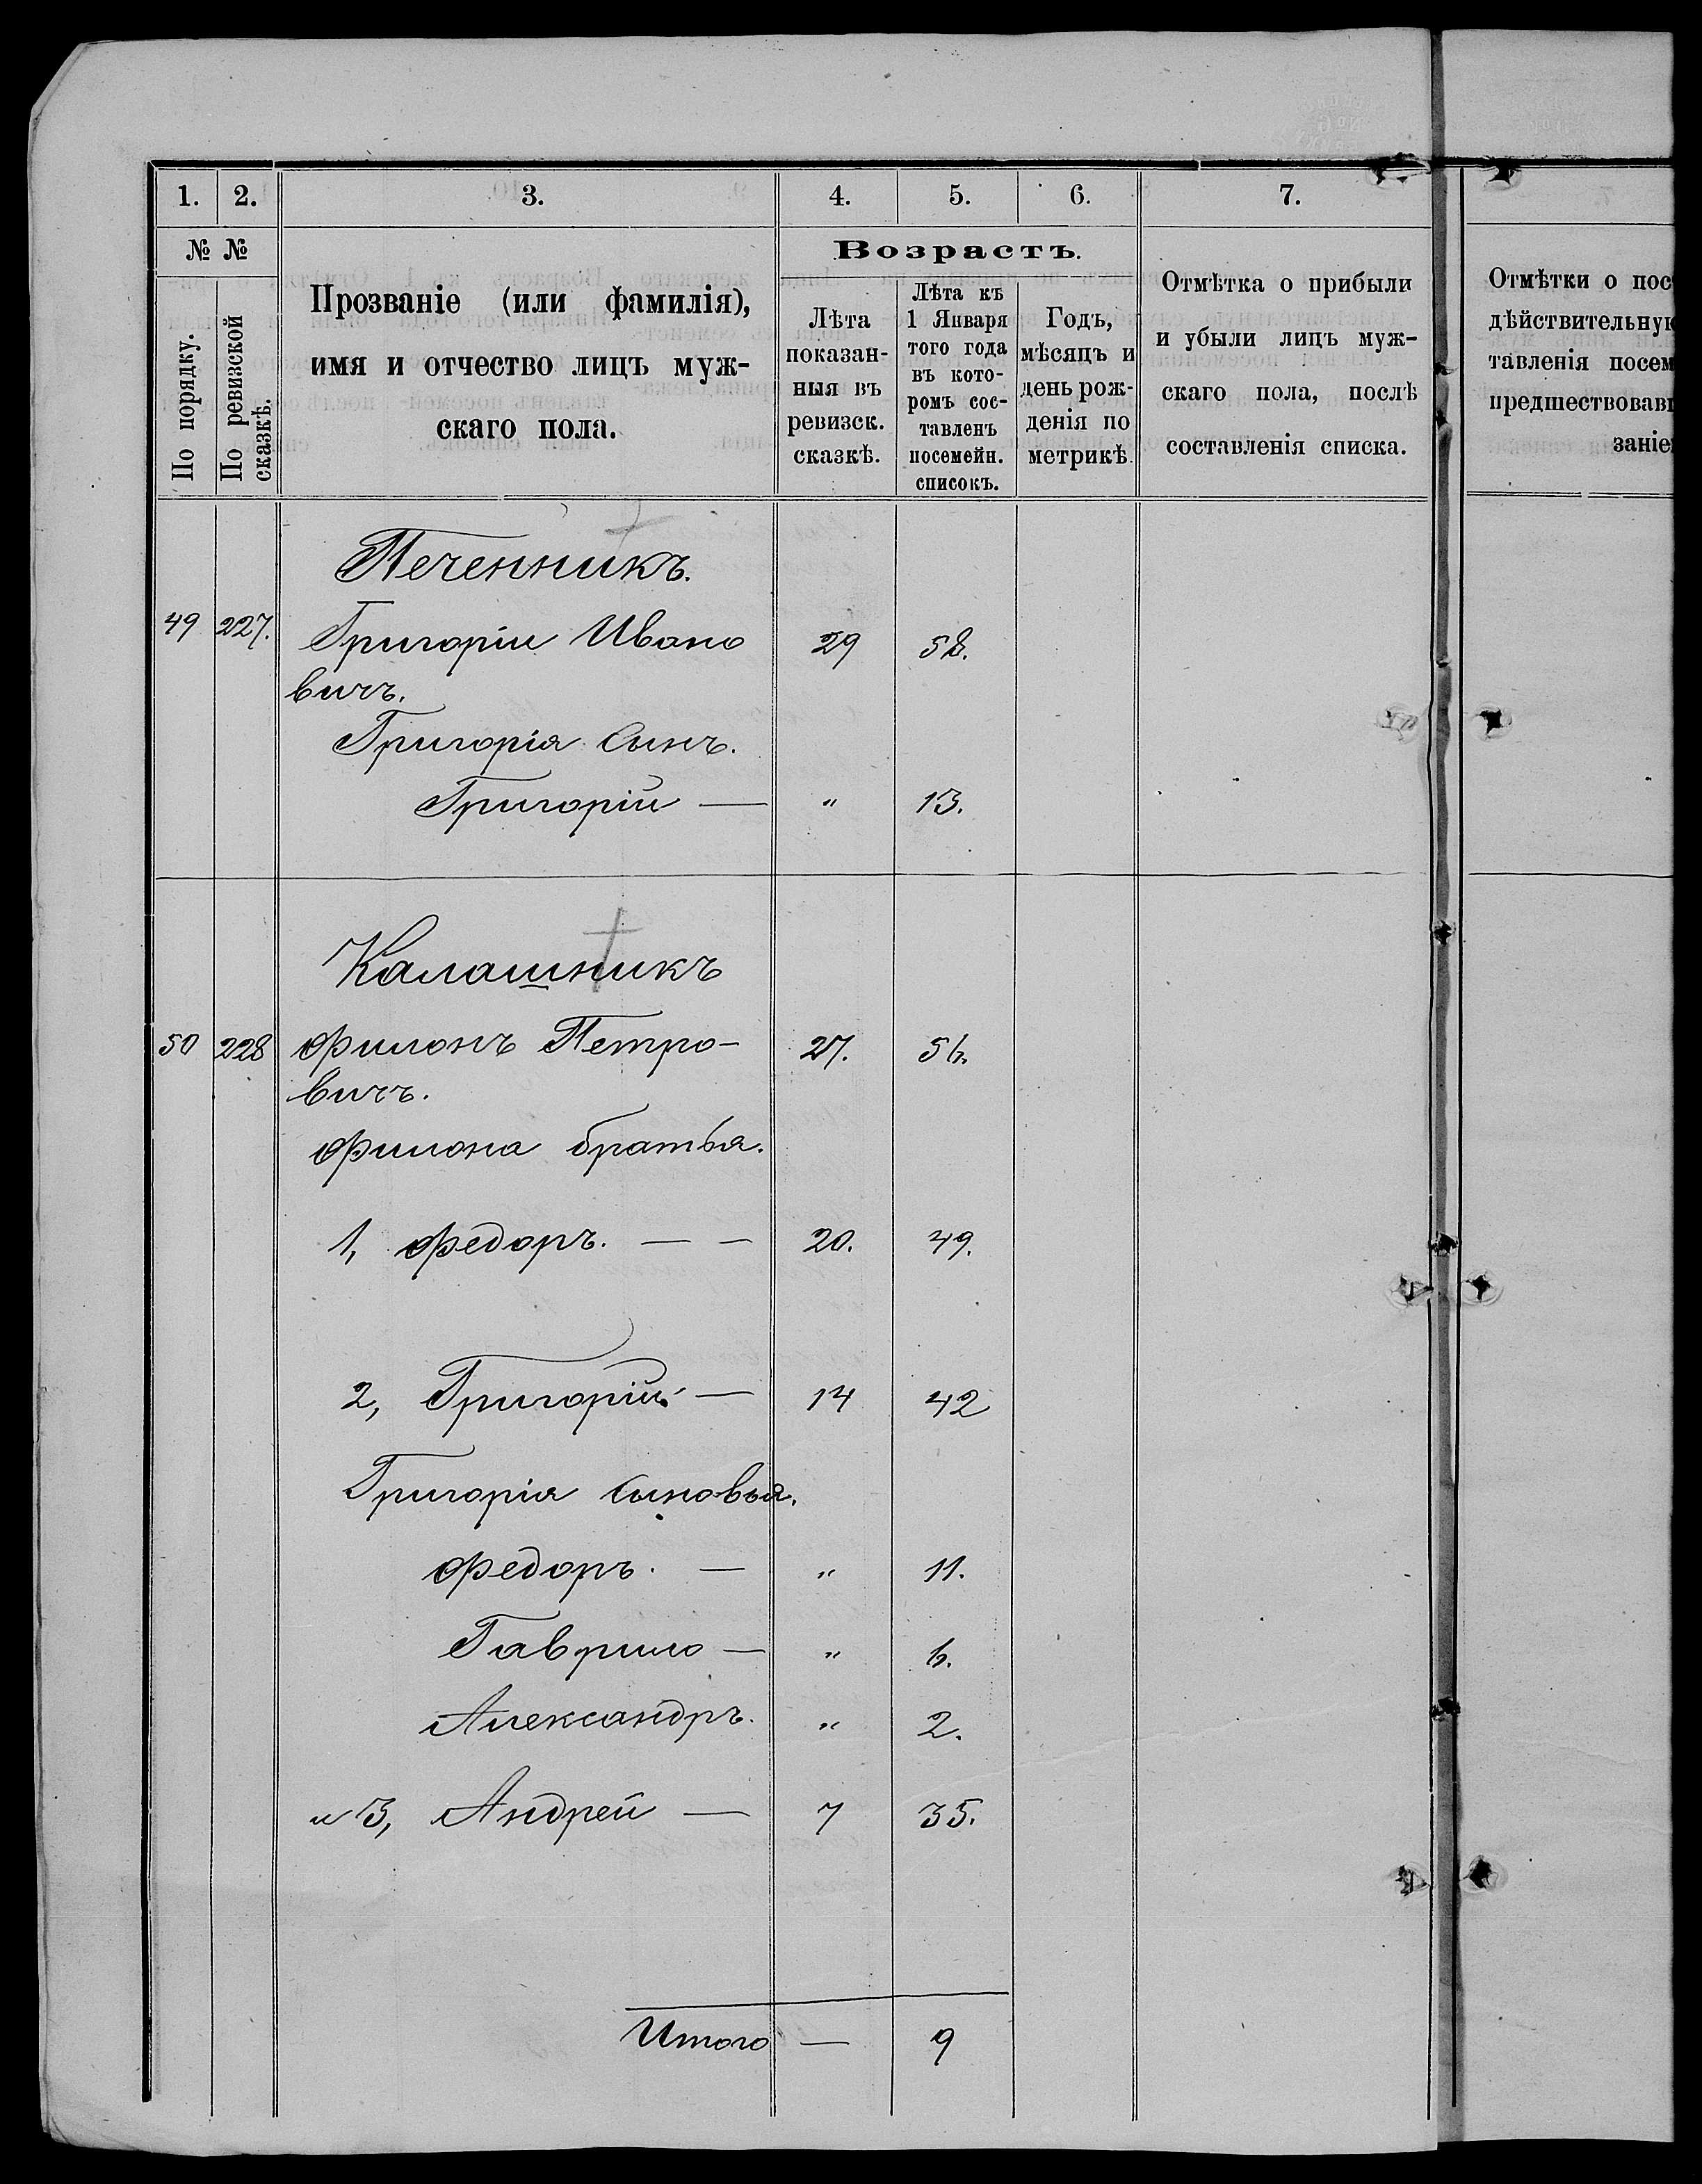 1. 2. 3. 4. 5. 6. 7.
№ №
По порядку.
По ревизской
сказкѣ.
Прозваніе (или фамилія),
имя и отчество лицъ муж-
скаго пола.
Возрастъ.
Лѣта
показан-
ныя въ
ревизск.
сказкѣ.
Лѣта къ
1 Января
того года
въ кото-
ромъ сос-
тавленъ
посемейн.
списокъ.
Годъ,
мѣсяцъ и
день рож-
денія по
метрикѣ.
Отмѣтка о прибыли
и убыли лицъ муж-
скаго пола, послѣ
составленія списка.
Отмѣтки о пос
дѣйствительную
тавленія посем
предшествовав
заніе
Печенникъ.
49 227. Григоріи Ивано 29 58.
вичъ.
Григорія Сынъ.
Григоріи — " 13.
Калашникъ
50 228 Филонъ Петро- 27. 56.
вичъ.
Филона братья.
1, Федоръ. — — 20. 49.
2, Григорій — 14 42
Григорія сыновья.
Федоръ. — " 11.
Гаврило — " 6.
Александръ. " 2.
и 3, Андрей — 7 35.
Итого — 9